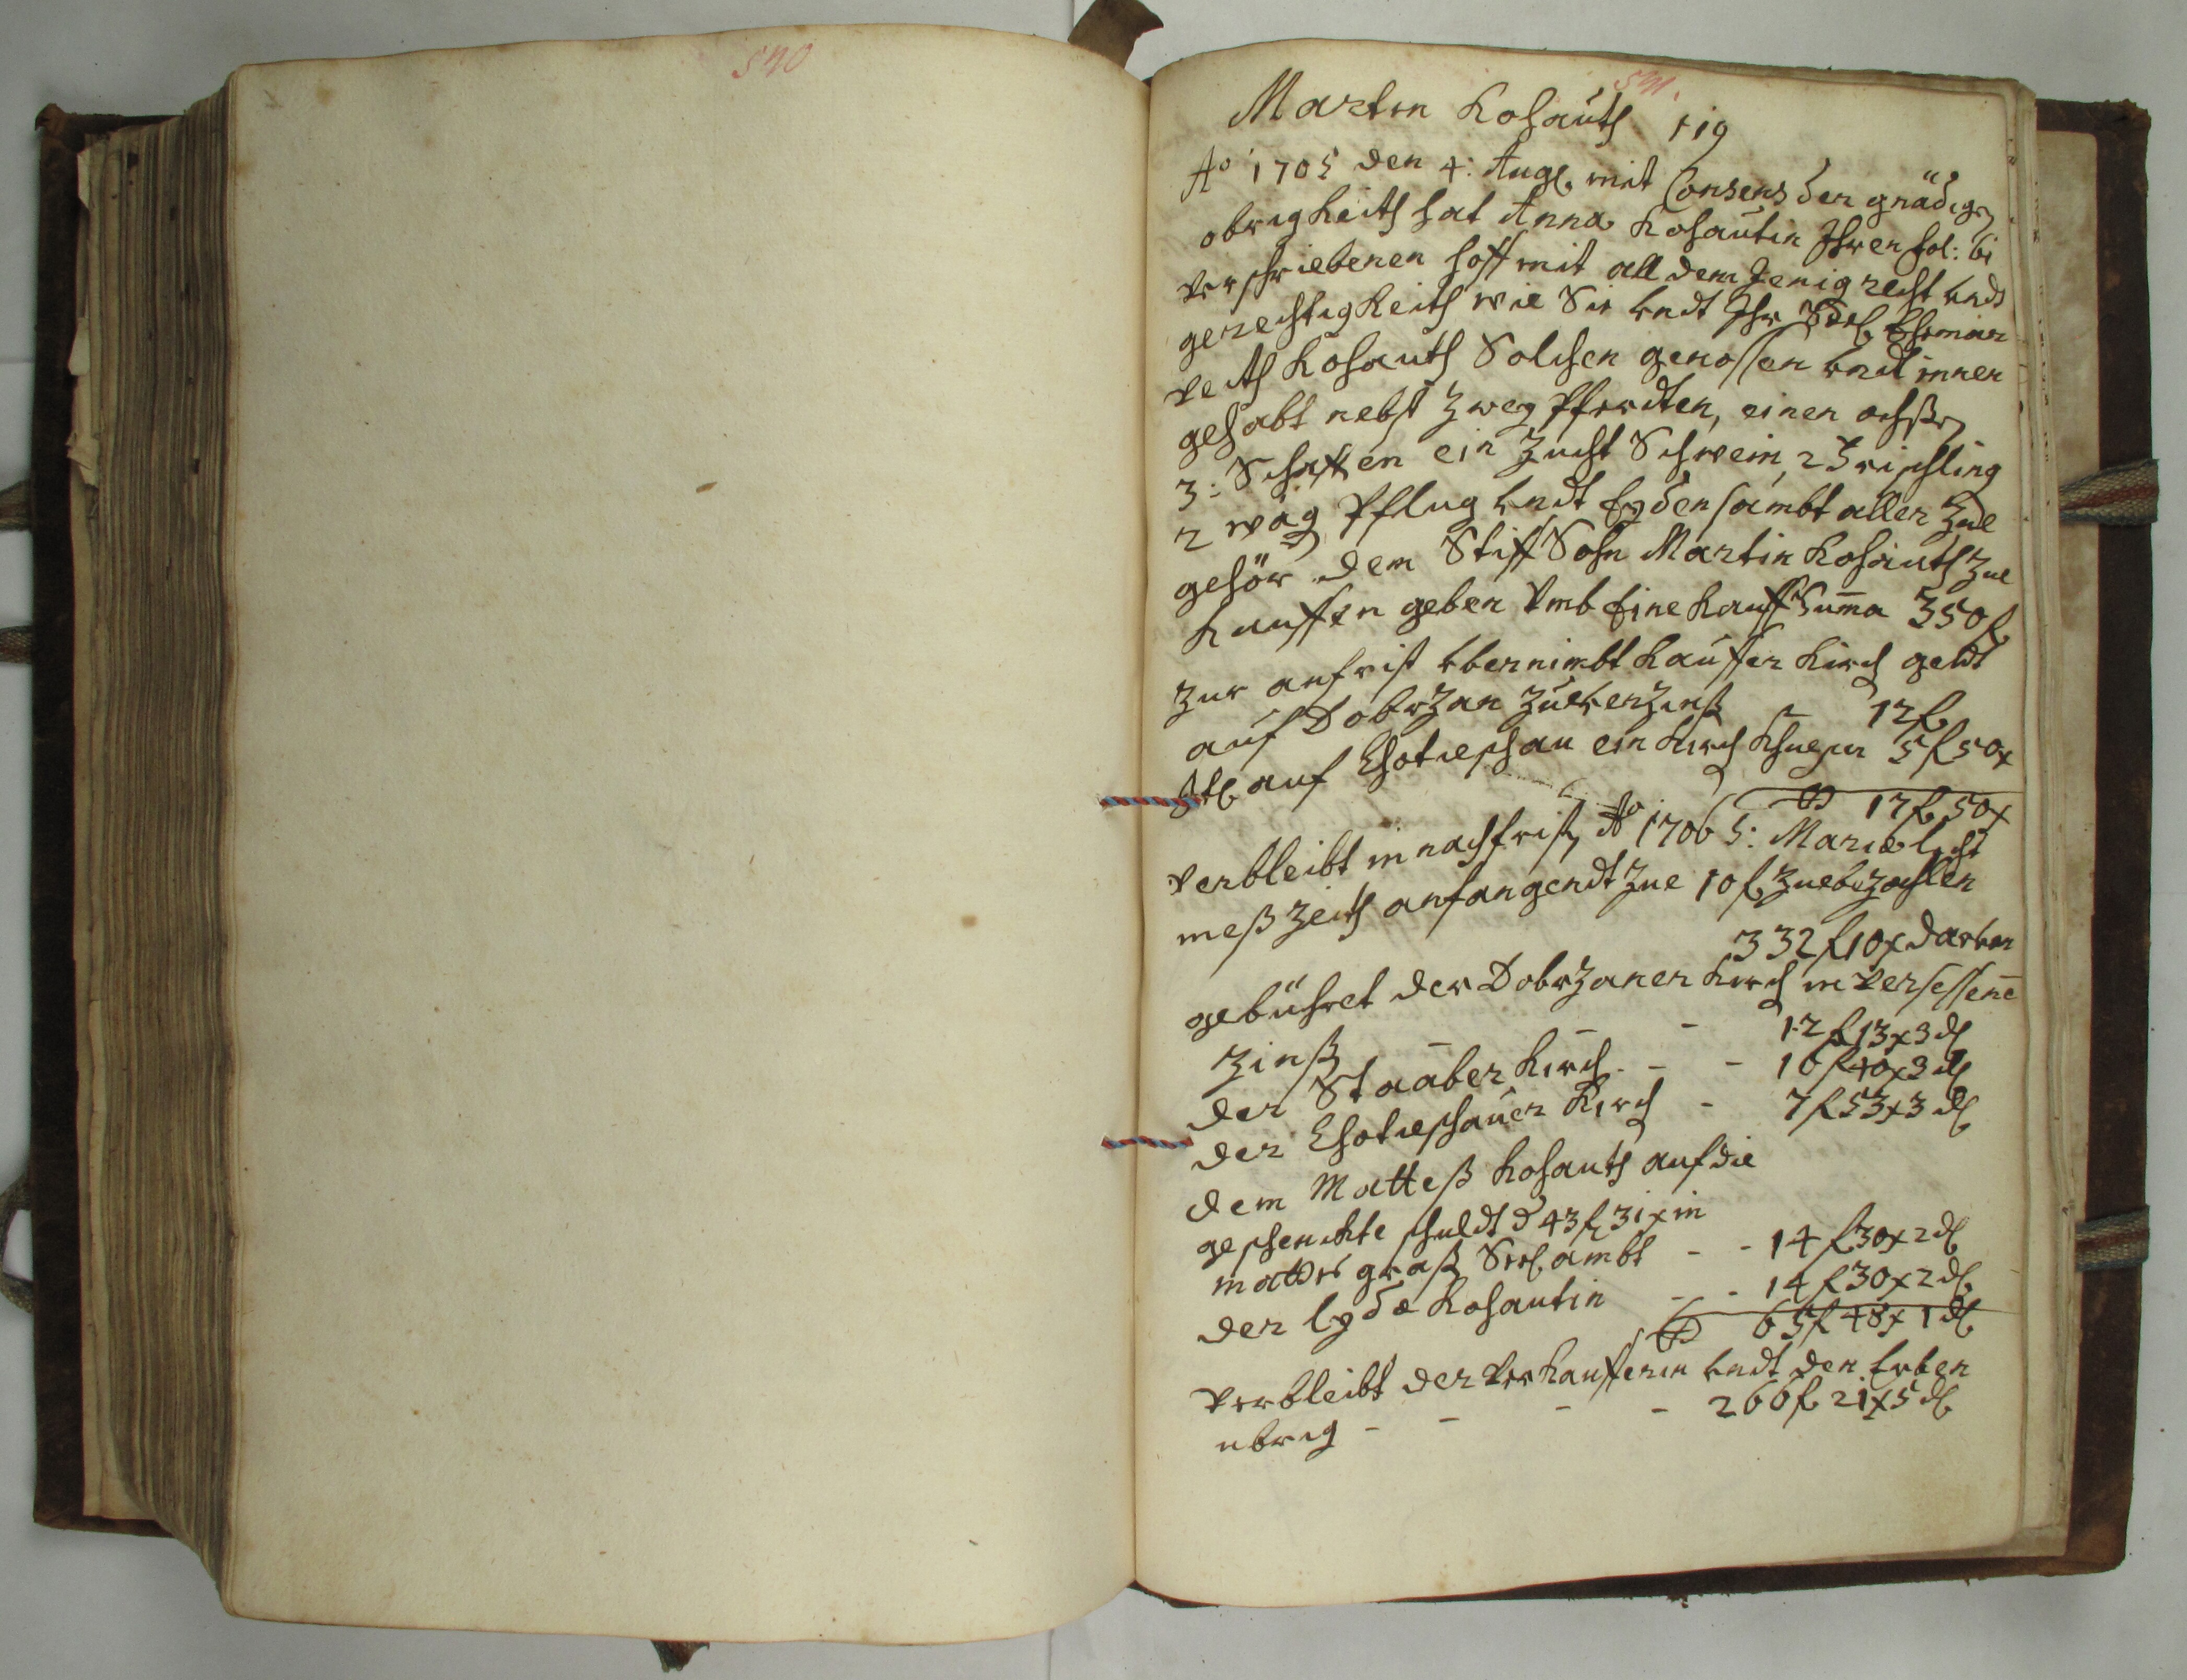 540
541.
Martin Kohauth 119
Ao 1705 den 4: Aug. mit Consens der gnädigen
obrigkeith hat Anna Kohautin Ihren fol: 61
verschriebenen hoff mit all dem Jenig recht undt
gerechtigkeith wie Sie undt Ihr Seel. Ehman
Veith Kohauth Solchen genossen undt innen
gehabt nebst Zwey Pferdten, einen ochsen
3: Schaffen ein Zucht Schwein, 2 Frischling
2 wäg Pflug undt Eyden sambt aller Zue
gehör dem Stiff Sohn Martin Kohauth Zue
Kauffen geben Umb Eine Kauff Suma 350 f
Zur anfrist Ubernimbt Kauffer Kirch geldt
auf Dobrzan Zu Verzinß - 12 f
Itl. auf Chotieschau ein Kirch Khue per 5 f 50 x
17 f 50 x
Verbleibt in nachfrist Ao 1706 S: Mariæ licht
meß Zeith anfangendt Zue 10 f Zuebezahlen
332 f 10 x darvon
gebühret der Dobrzaner Kirch in Versessene
Zinß - - 12 f 13 x 3 d
der Staaber Kirch - - 16 f 40 x 3 d
der Chotieschauer Kirch - 7 f 53 x 3 d
dem Matteß Kohauth auf die
geschenckte schuldt d 43 f 31 x in
Seel ambt - - 14 f 30 x 2 d
der Lydæ Kohautin - - 14 f 30 x 2 d
65 f 48 x 1 d
Verbleibt der Verkaufferin undt den Erben
ubrig - - - - 266 f 21 x 5 d